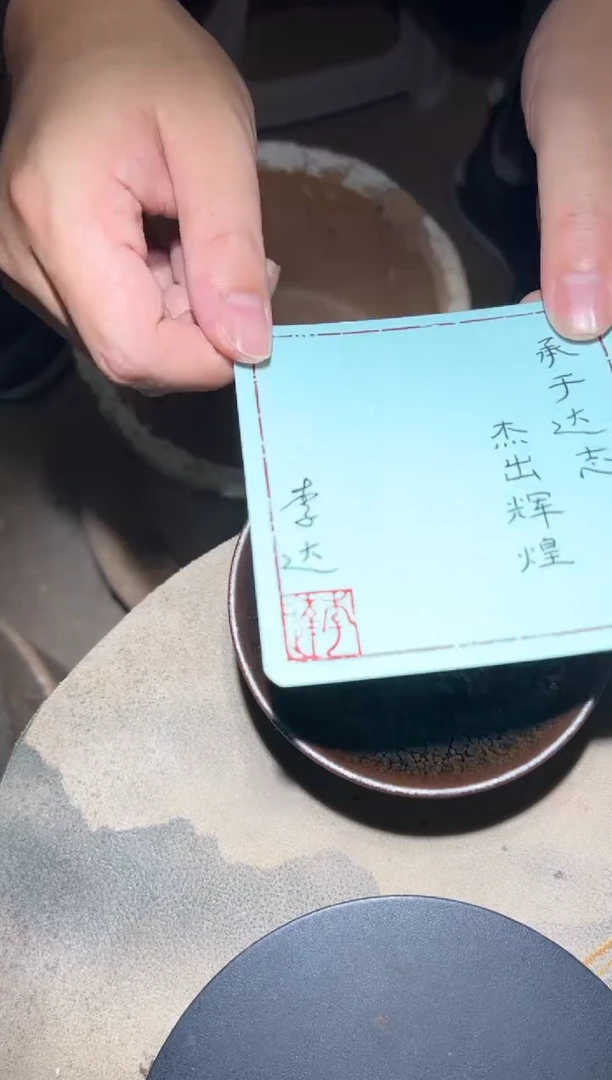 承于达志
杰出辉煌
李达
李達